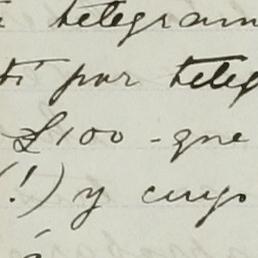 telegram
ti por teleg
£100 - que
(!) y cuyo